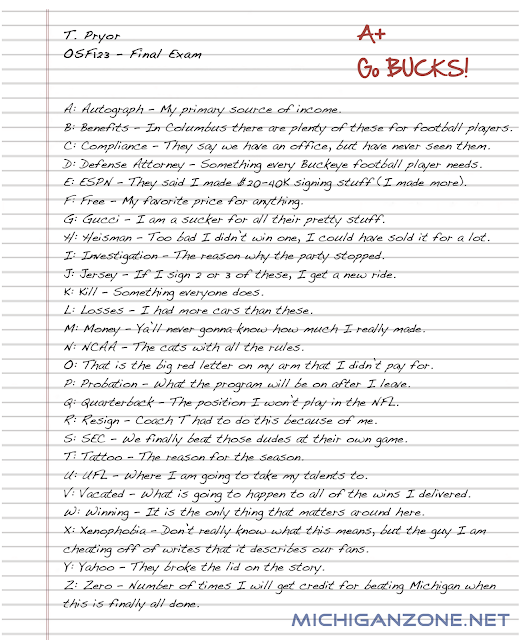 T. Pryor
A+
OSF123 - Final Exam
Go BUCKS!
A: Autograph - My primary source of income.
B: Benefits - In Columbus there are plenty of these for football players.
C: Compliance - They say we have an office, but have never seen them.
D: Defense Attorney - Something every Buckeye football player needs.
E: ESPN - They said I made $20-40K signing stuff (I made more).
F: Free - My favorite price for anything.
G: Gucci - I am a sucker for all their pretty stuff.
H: Heisman - Too bad I didn't win one, I could have sold it for a lot.
I: Investigation - The reason why the party stopped.
J: Jersey - If I sign 2 or 3 of these, I get a new ride.
K: Kill - Something everyone does.
L: Losses - I had more cars than these.
M: Money - Ya'll never gonna know how much I really made.
N: NCAA - The cats with all the rules.
O: That is the big red letter on my arm that I didn't pay for.
P: Probation - What the program will be on after I leave.
Q: Quarterback - The position I won't play in the NFL.
R: Resign - Coach T had to do this because of me.
S: SEC - We finally beat those dudes at their own game.
T: Tattoo - The reason for the season.
U: UFL - Where I am going to take my talents to.
V: Vacated - What is going to happen to all of the wins I delivered.
W: Winning - It is the only thing that matters around here.
X: Xenophobia - Don't really know what this means, but the guy I am
cheating off of writes that it describes our fans.
Y: Yahoo - They broke the lid on the story.
Z: Zero - Number of times I will get credit for beating Michigan when
this is finally all done.
MICHIGANZONE.NET